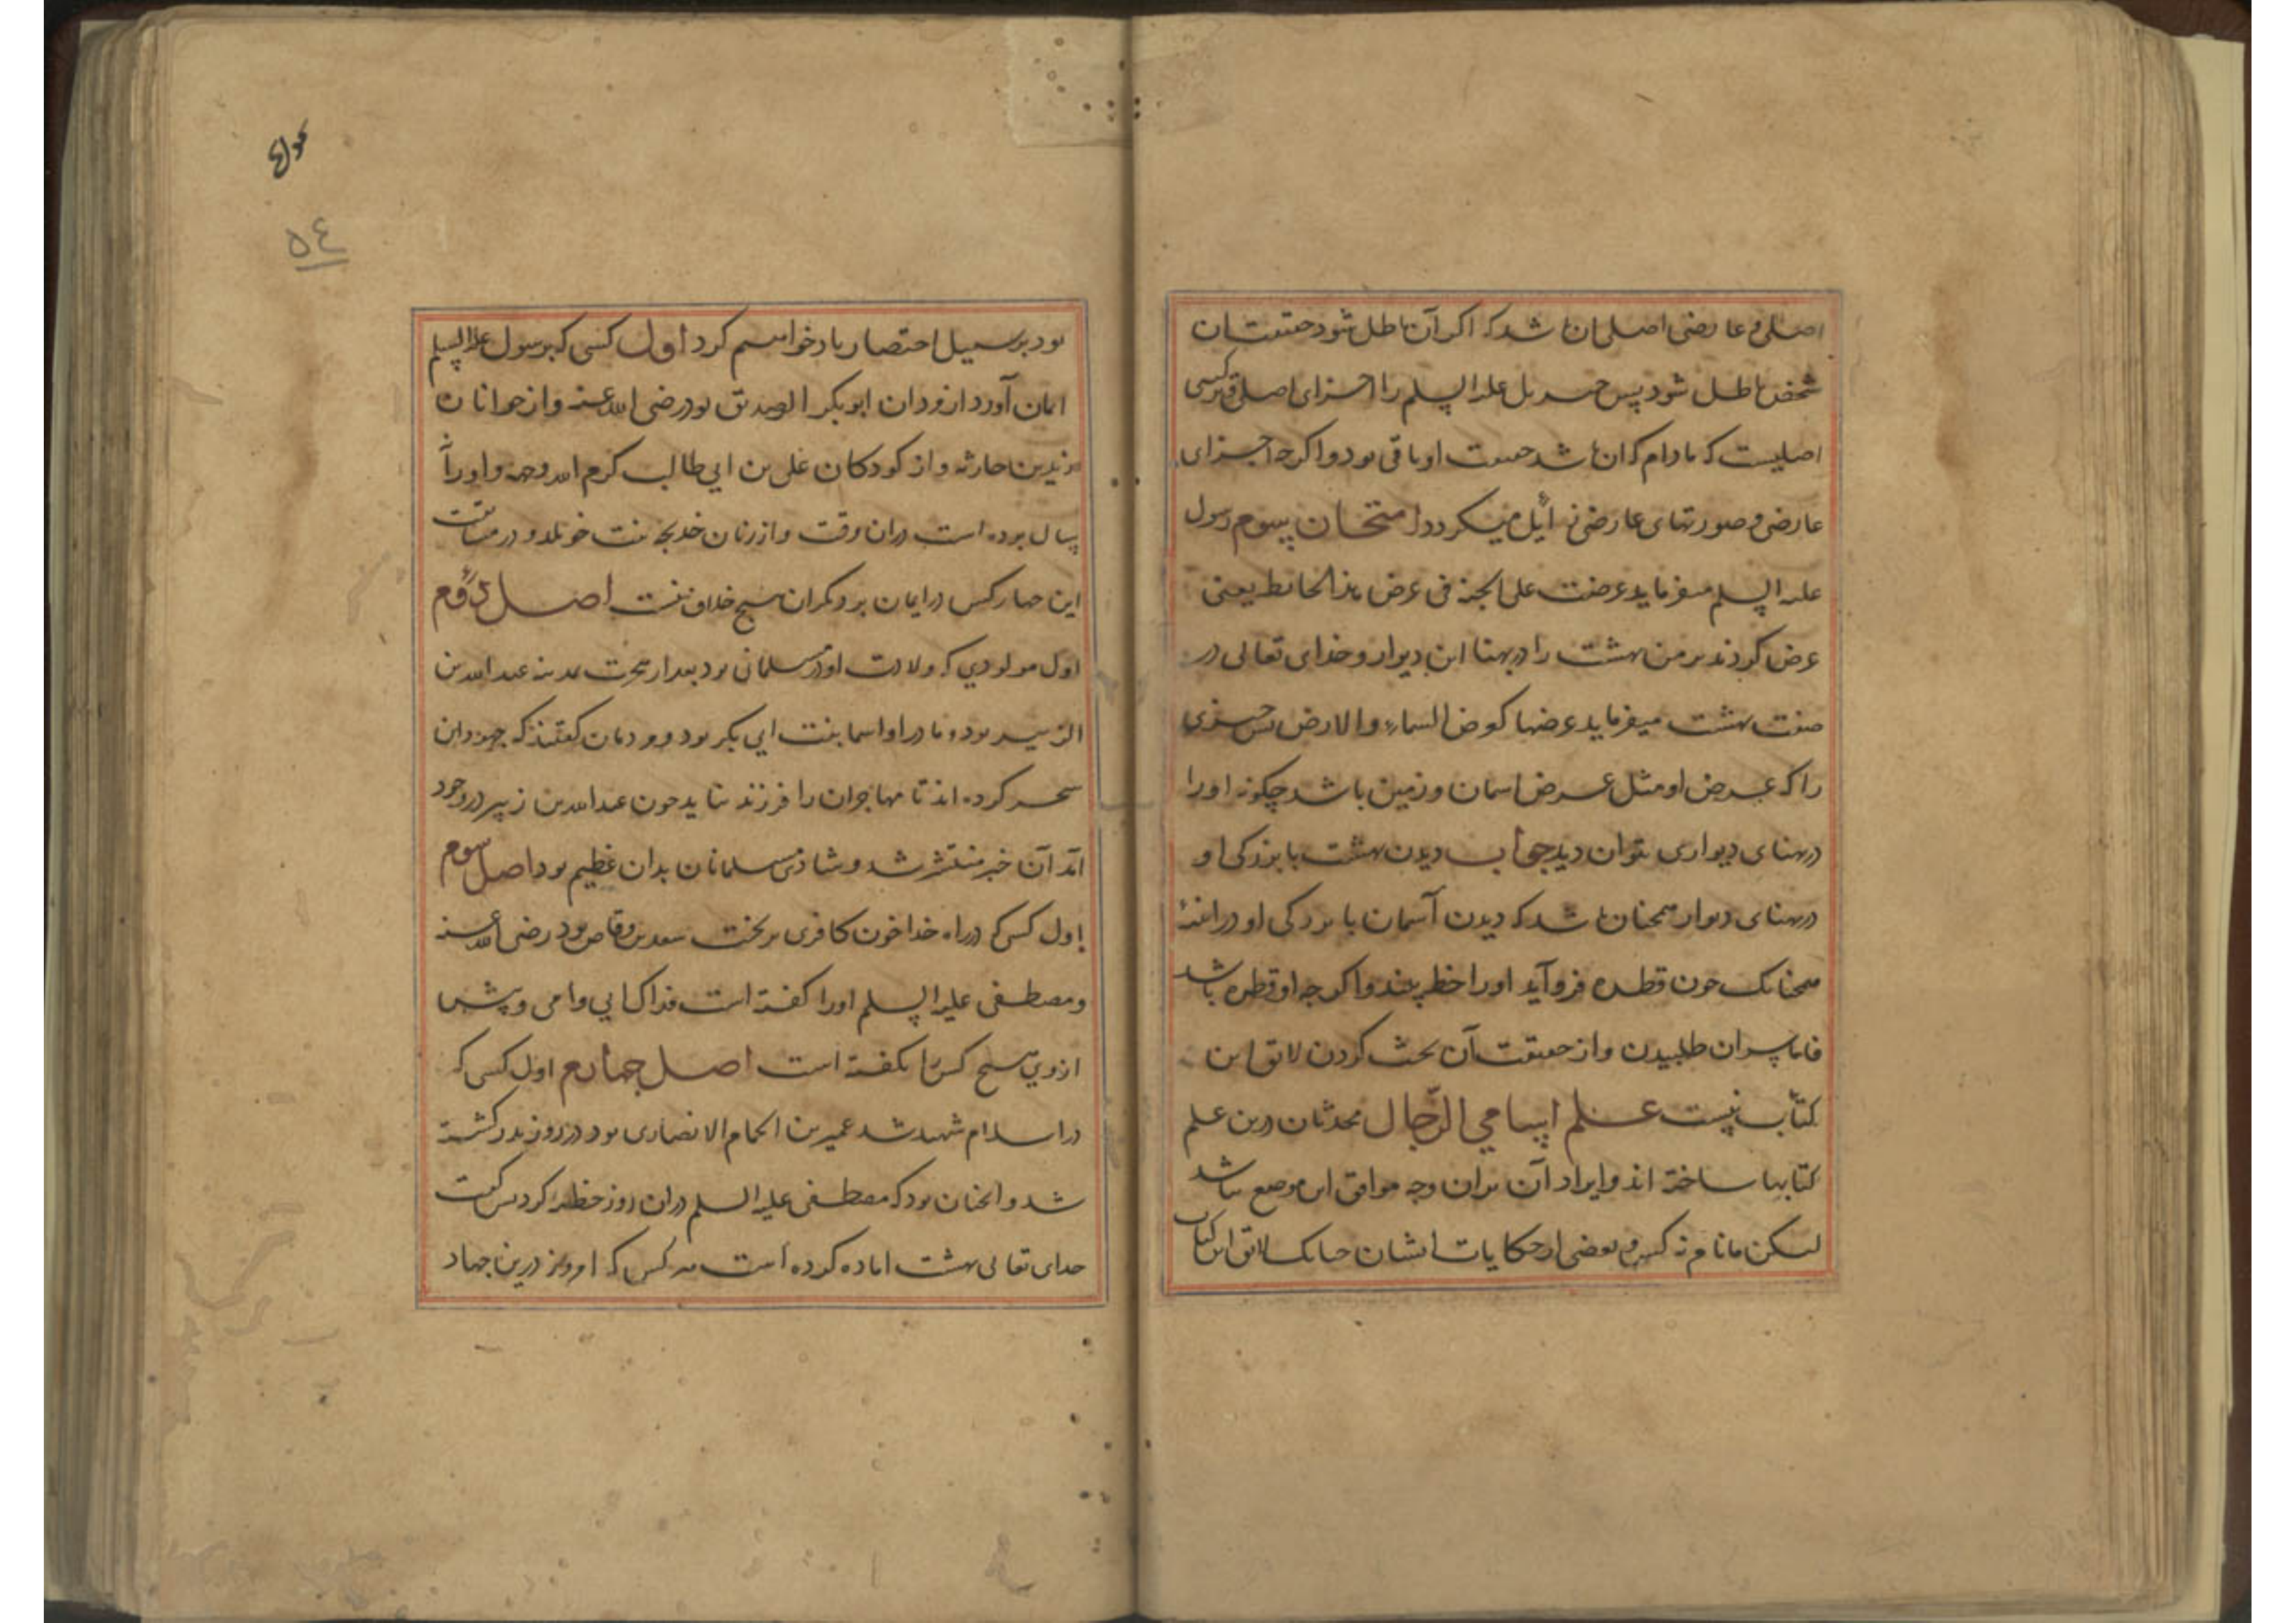 اصلی و عارضی اصلی ان باشد که اگر آن باطل شود حقیقت ان
شخص باطل شود پس جبریل علیه السلم را اجزای اصلی و ترکیبی
اصلیست که مادام که ان باشد حقیقت او باقی بود و اگرچه اجزای
عارضی و صورتهای عارضی زایل میگردد امتحان سوم رسول
علیه السلم میفرماید عرضت علی الجنة فی عرض هذا الحائط یعنی
عرض کردند بر من بهشت را در پهنا این دیوار و خدای تعالی در
صفت بهشت میفرماید عرضها کعرض السماء والارض پس چیزی
را که عرض او مثل عرض اسمان و زمین باشد چگونه او را
در پهنای دیواری بتوان دید جواب دیدن بهشت با بزرگی او
در پهنای دیوار همچنان باشد که دیدن آسمان با بزرگی او در اینه
همچنانک چون قطره فرو آید او را خط بیند و اگرچه او قطره باشد
فاما سر ان طلبیدن و از حقیقت آن بحث کردن لایق این
کتاب نیست علم اسامی الرجال محدثان درین علم
کتابها ساخته اند و ایراد آن بران وجه موافق این موضع نباشد
لیکن ما نام و بعضی از حکایات ایشان چنانک لایق این کتاب
۵٤
بود بر سبیل اختصار یاد خواهیم کرد اول کسی که برسول علیه السلم
ایمان آورد از مردان ابوبکر الصدیق بود رضی الله عنه و از جوانان
زید بن حارثه و از کودکان علی بن ابی طالب کرم الله وجهه و او را
سال بوده است دران وقت و از زنان خدیجه بنت خویلد و در مسابقت
این چهار کس در ایمان بر دیگران هیچ خلاف نیست اصل دوم
اول مولودی که ولادت او در مسلمانی بود بعد از هجرت بمدینه عبدالله بن
الزبیر بود و مادر او اسما بنت ابی بکر بود و مردمان گفتند که جهودان
سحر کرده اند تا مهاجران را فرزند نیاید چون عبدالله بن زبیر در وجود
آمد آن خبر منتشر شد و شادی مسلمانان بدان عظیم بود اصل سوم
اول کس که در راه خدا خون کافری بریخت سعد بن وقاص بود رضی الله عنه
و مصطفی علیه السلم او را گفته است فداک ابی وامی و پیش
از وی هیچ کس را نگفته است اصل چهارم اول کسی که
در اسلام شهید شد عمیر بن الحمام الانصاری بود در روز بدر کشته
شد و انچنان بود که مصطفی علیه السلم دران روز خطبه کرد پس گفت
خدای تعالی بهشت اماده کرده است هر کس که امروز درین جهاد